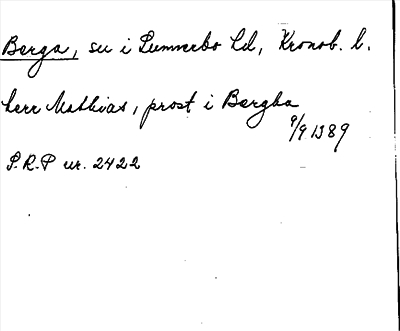 Berga, su i Sunnerbo hd, Kronob. l.
herr Mathias, prost i Bergba
9/9 1389
S.R.P nr. 2422